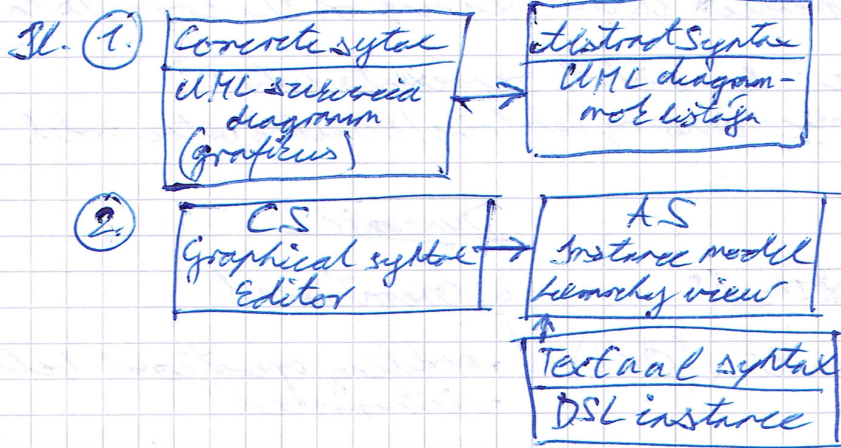 Pl. 1.
Concrete sytax
UML szekvencia
diagramm
(grafikus)
Abstract Syntax
UML diagram-
mok listája
2.
CS
Graphical syntax
Editor
A.S
Instance model
hierarchy view
Textual syntax
DSL instance